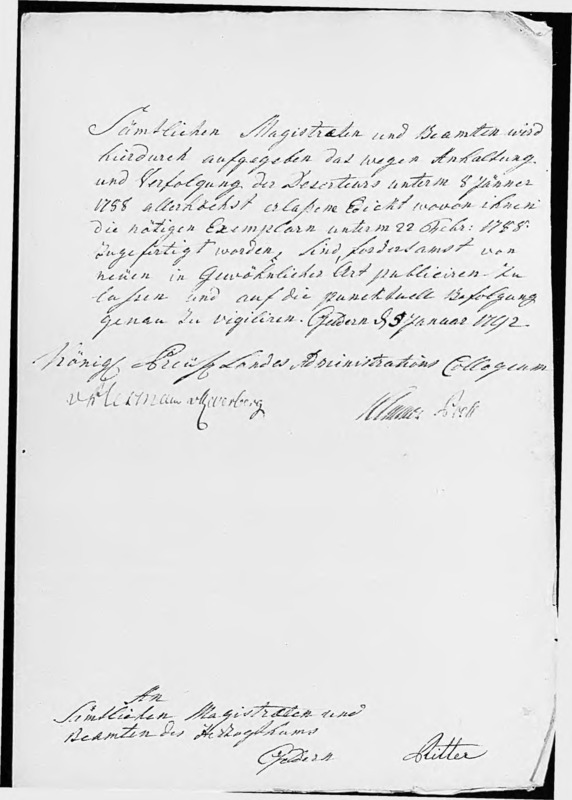 Sämtlichen Magistraten und Beamten wird
hierdurch aufgegeben das wegen Anhaltung
und Verfolgung der Deserteurs unterm 8 Jänner
1788 allerhöchst erlaßene Edict wovon ihnen
die nötigen Exemplarn unterm 22 Febr: 1788
zugefertigt worden, sind fordersamst von
neuen in Gewöhnlicher Art publiciren zu
lassen und auf die punktuelle Befolgung
genau zu vigiliren. Geldern d 5 Januar 1792.
Königl Preuß Landes Administrations Collegium
An
Sämtlichen Magistraten und
Beamten des Herzogthums
Geldern Ritter